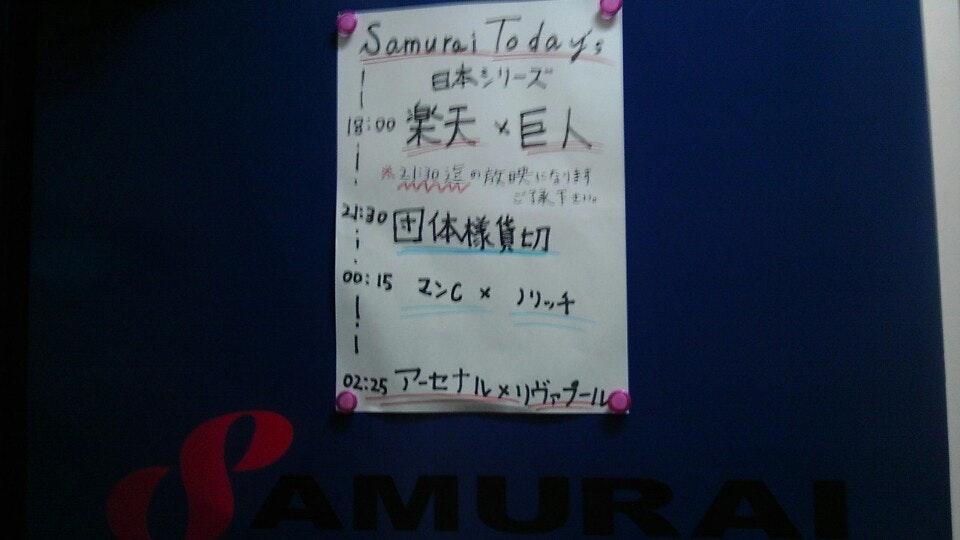 Samurai Today's
日本シリーズ
18:00 楽天 × 巨人
※21:30迄の放映になります
ご了承下さい。
21:30 団体様貸切
00:15 マンC × ノリッチ
02:25 アーセナル×リヴァプール
SAMURAI